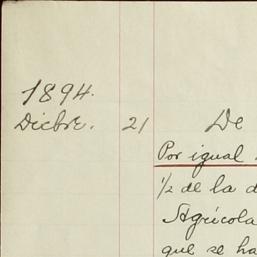 1894.
Dicbre. 21 De
Por igual
1/2 de la d
Agrícola
que se ha